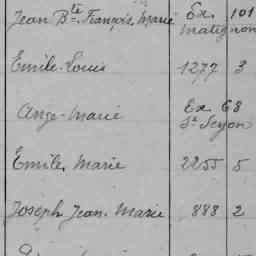 Jean Bte François Marie Ex. 101
Matignon
Emile-Louis 1277 3
Ange-Marie Ex 68
St
Emile, Marie 2255 5
Joseph Jean-Marie 888 2